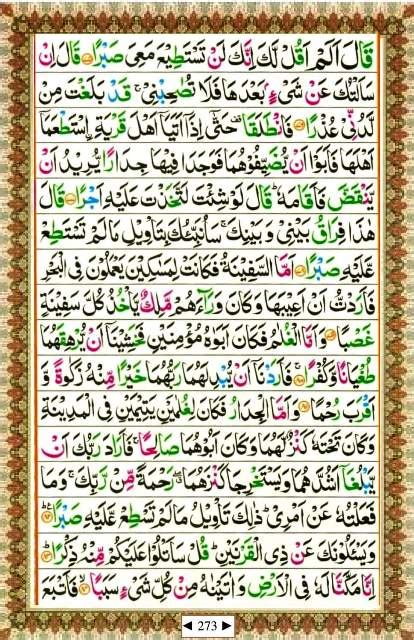 قَالَ اَلَمْ اَقُلْ لَّكَ اِنَّكَ لَنْ تَسْتَطِيْعَ مَعِىَ صَبْرًا ۝ قَالَ اِنْ
سَاَلْتُكَ عَنْ شَىْءٍۢ بَعْدَهَا فَلَا تُصٰحِبْنِىْ ۚ قَدْ بَلَغْتَ مِنْ
لَّدُنِّىْ عُذْرًا ۝ فَانْطَلَقَا ۥ حَتّٰٓى اِذَاۤ اَتَيَاۤ اَهْلَ قَرْيَةِ ۨاسْتَطْعَمَاۤ
اَهْلَهَا فَاَبَوْا اَنْ يُّضَيِّفُوْهُمَا فَوَجَدَا فِيْهَا جِدَارًا يُّرِيْدُ اَنْ
يَّنْقَضَّ فَاَقَامَهٗ ؕ قَالَ لَوْ شِئْتَ لَتَّخَذْتَ عَلَيْهِ اَجْرًا ۝ قَالَ
هٰذَا فِرَاقُ بَيْنِىْ وَ بَيْنِكَ ۚ سَاُنَبِّئُكَ بِتَاْوِيْلِ مَا لَمْ تَسْتَطِعْ
عَّلَيْهِ صَبْرًا ۝ اَمَّا السَّفِيْنَةُ فَكَانَتْ لِمَسٰكِيْنَ يَعْمَلُوْنَ فِى الْبَحْرِ
فَاَرَدْتُّ اَنْ اَعِيْبَهَا وَ كَانَ وَرَآءَهُمْ مَّلِكٌ يَّاْخُذُ كُلَّ سَفِيْنَةٍ
غَصْبًا ۝ وَ اَمَّا الْغُلٰمُ فَكَانَ اَبَوٰهُ مُؤْمِنَيْنِ فَخَشِيْنَاۤ اَنْ يُّرْهِقَهُمَا
طُغْيَانًا وَّ كُفْرًا ۝ فَاَرَدْنَاۤ اَنْ يُّبْدِلَهُمَا رَبُّهُمَا خَيْرًا مِّنْهُ زَكٰوةً وَّ
اَقْرَبَ رُحْمًا ۝ وَ اَمَّا الْجِدَارُ فَكَانَ لِغُلٰمَيْنِ يَتِيْمَيْنِ فِى الْمَدِيْنَةِ
وَ كَانَ تَحْتَهٗ كَنْزٌ لَّهُمَا وَ كَانَ اَبُوْهُمَا صَالِحًا ۚ فَاَرَادَ رَبُّكَ اَنْ
يَّبْلُغَاۤ اَشُدَّهُمَا وَ يَسْتَخْرِجَا كَنْزَهُمَا ۖ رَحْمَةً مِّنْ رَّبِّكَ ۚ وَ مَا
فَعَلْتُهٗ عَنْ اَمْرِىْ ؕ ذٰلِكَ تَاْوِيْلُ مَا لَمْ تَسْطِعْ عَّلَيْهِ صَبْرًا ۝
وَ يَسْـَٔلُوْنَكَ عَنْ ذِى الْقَرْنَيْنِ ؕ قُلْ سَاَتْلُوْا عَلَيْكُمْ مِّنْهُ ذِكْرًا ۝
اِنَّا مَكَّنَّا لَهٗ فِى الْاَرْضِ وَ اٰتَيْنٰهُ مِنْ كُلِّ شَىْءٍ سَبَبًا ۝ فَاَتْبَعَ
◄ 273 ►